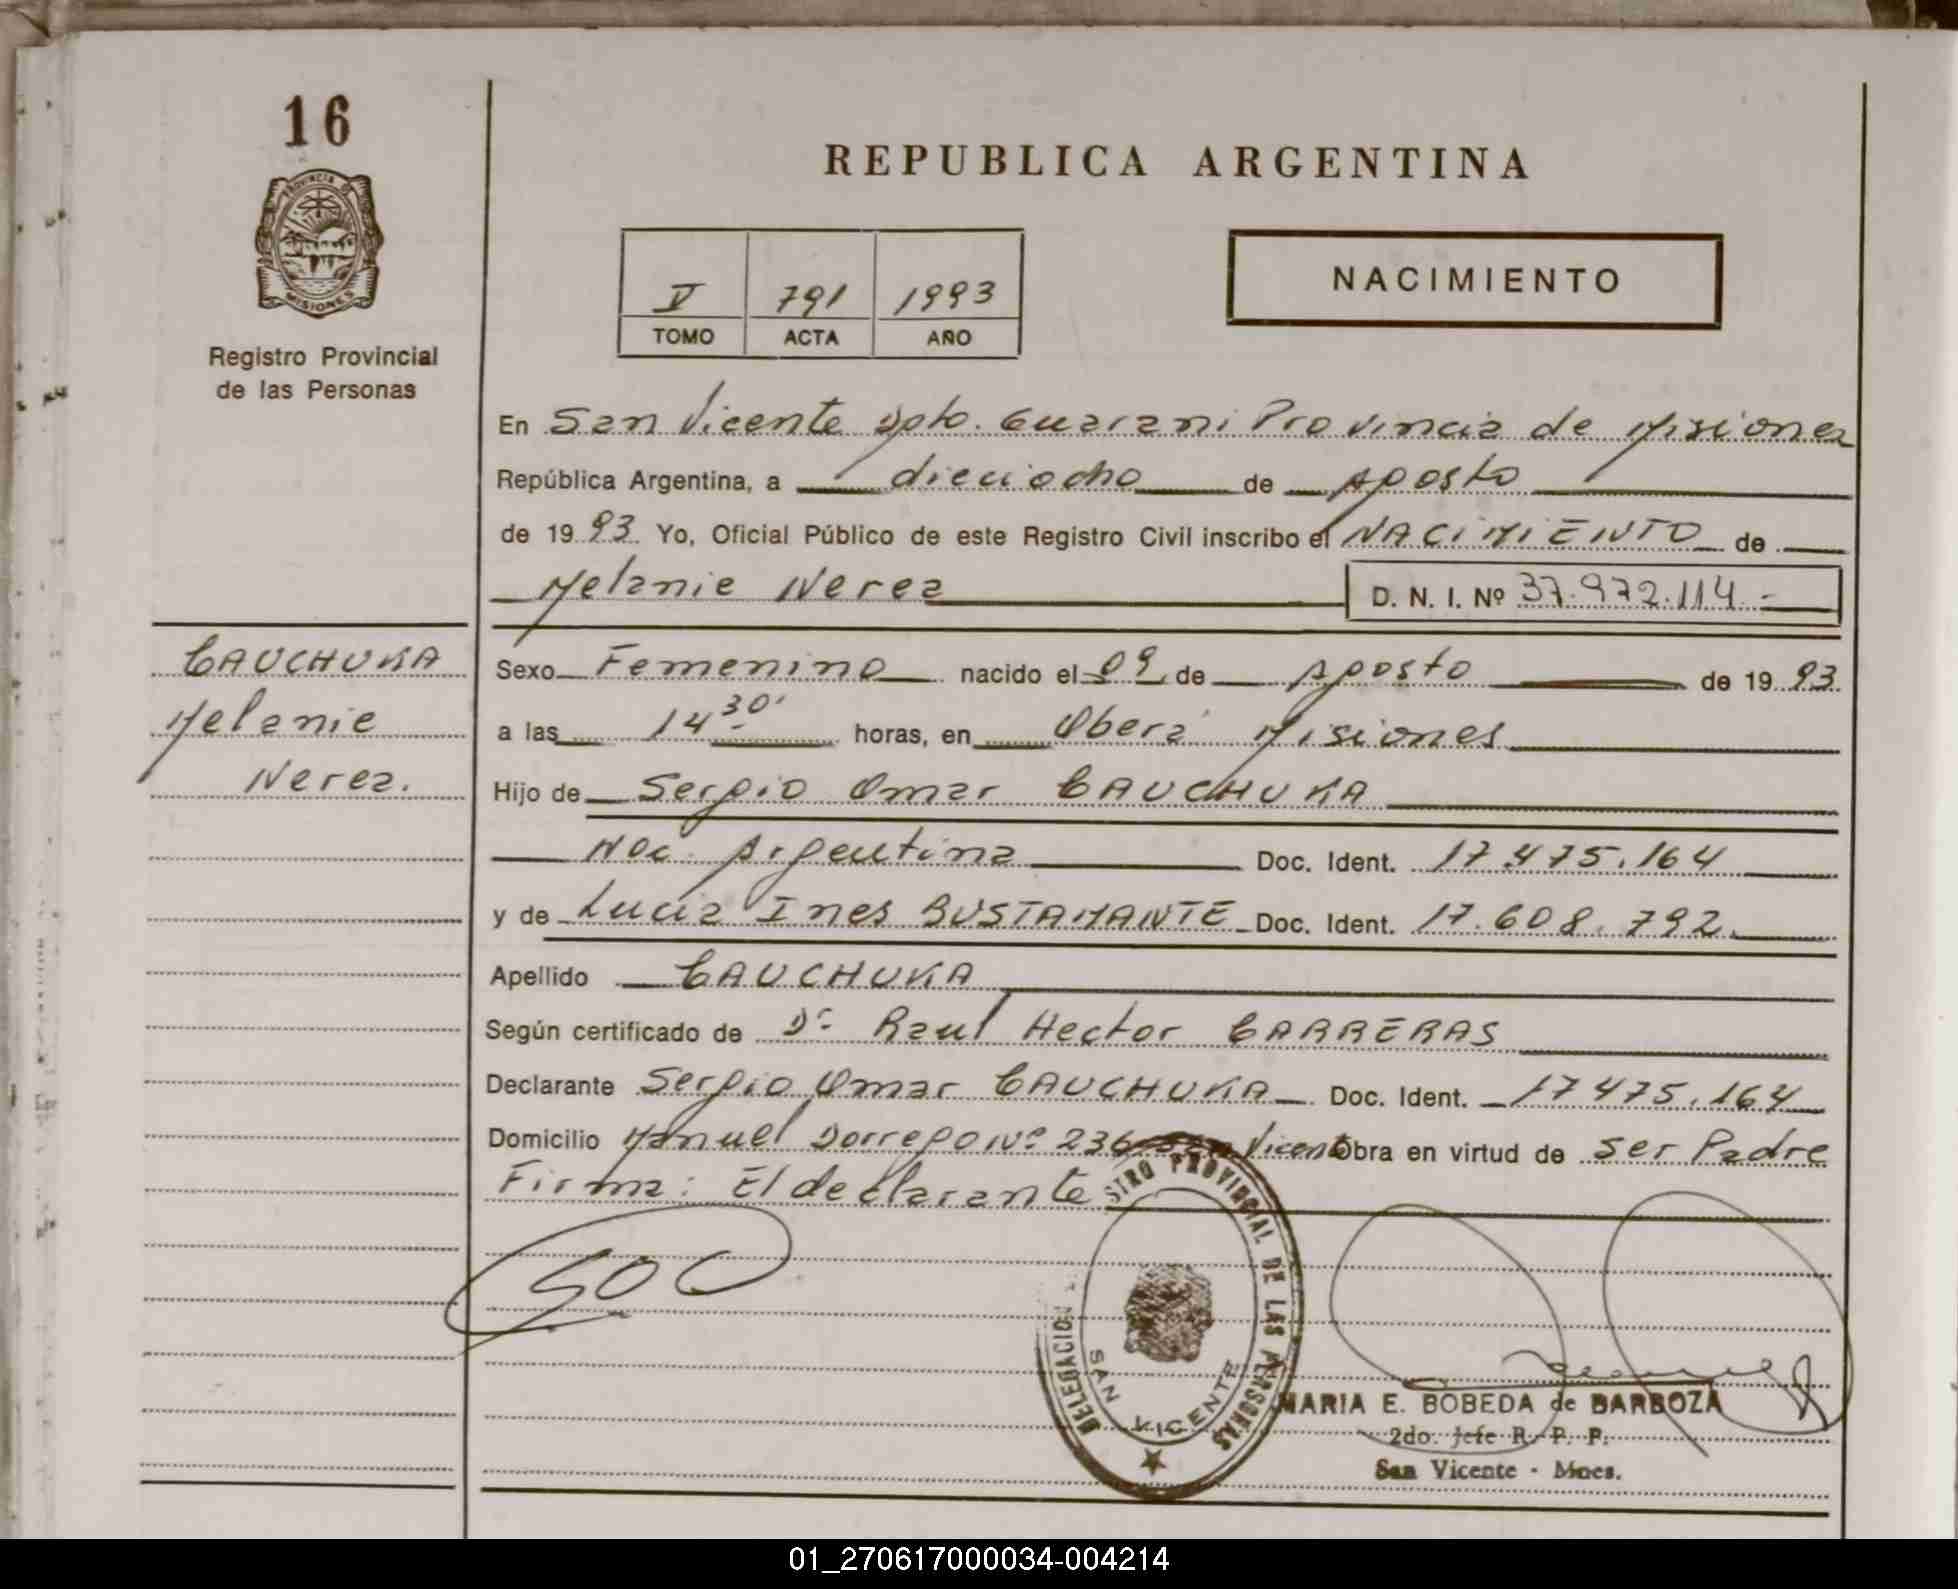 16
PROVINCIA DE
MISIONES
Registro Provincial
de las Personas
REPUBLICA ARGENTINA
V 791 1993
TOMO ACTA AÑO
NACIMIENTO
En San Vicente Dpto. Guarani Provincia de Misiones
República Argentina, a dieciocho de Agosto
de 1993 Yo, Oficial Público de este Registro Civil inscribo el NACIMIENTO de
Melanie Nerea D. N. I. Nº 37.972.114.-
CAUCHUKA
Melanie
Nerea.
Sexo Femenino nacido el 09 de Agosto de 1993
a las 14 30' horas, en Oberá Misiones
Hijo de Sergio Omar CAUCHUKA
Nac. Argentina Doc. Ident. 17.475.164
y de Lucia Ines BUSTAMANTE Doc. Ident. 17.608.792.
Apellido CAUCHUKA
Según certificado de Dr. Raul Hector CARRERAS
Declarante Sergio Omar CAUCHUKA Doc. Ident. 17475.164
Domicilio Manuel Dorrego Nº 236 San Vicente Obra en virtud de ser Padre
Firma: El declarante
DELEGACION SAN VICENTE
STRO PROVINCIAL DE LAS PERSONAS
MARIA E. BOBEDA de BARBOZA
2do. Jefe R. P. P.
San Vicente - Mnes.
01_270617000034-004214